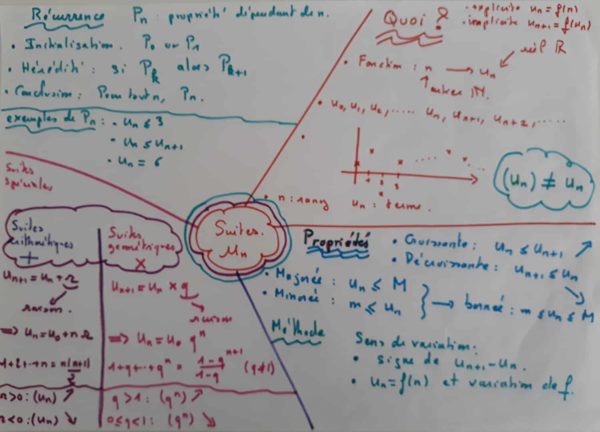 Récurrence Pn : propriété dépendant de n.
• Initialisation. P0 ou P1
• Hérédité : si Pk alors Pk+1
• Conclusion : Pour tout n, Pn.
exemples de Pn : • un ≤ 3
• un ≤ un+1
• un = 6
Quoi ?
• explicite un = f(n)
• implicite un+1 = f(un)
réel ℝ
• Fonction : n → un
entier ℕ.
• u0, u1, u2, ..... un, un+1, un+2, .....
1 2 3
(un) ≠ un
• n : rang un : terme.
Suites spéciales
Suites arithmétiques
+
un+1 = un + r
raison.
⟹ un = u0 + n r
1+2+...+n = n(n+1)/2
r>0 : (un) ↗
r<0 : (un) ↘
Suites géométriques
×
un+1 = un × q
raison
⟹ un = u0 qⁿ
1+q+...+qⁿ = (1-qⁿ⁺¹)/(1-q) (q≠1)
q>1 : (qⁿ) ↗
0≤q<1 : (qⁿ) ↘
Suites.
un
Propriétés
• Croissante : un ≤ un+1 ↗
• Décroissante : un+1 ≤ un ↘
• Majorée : un ≤ M
• Minorée : m ≤ un
} → bornée : m ≤ un ≤ M
Méthode
Sens de variation.
• signe de un+1 - un.
• un = f(n) et variation de f.